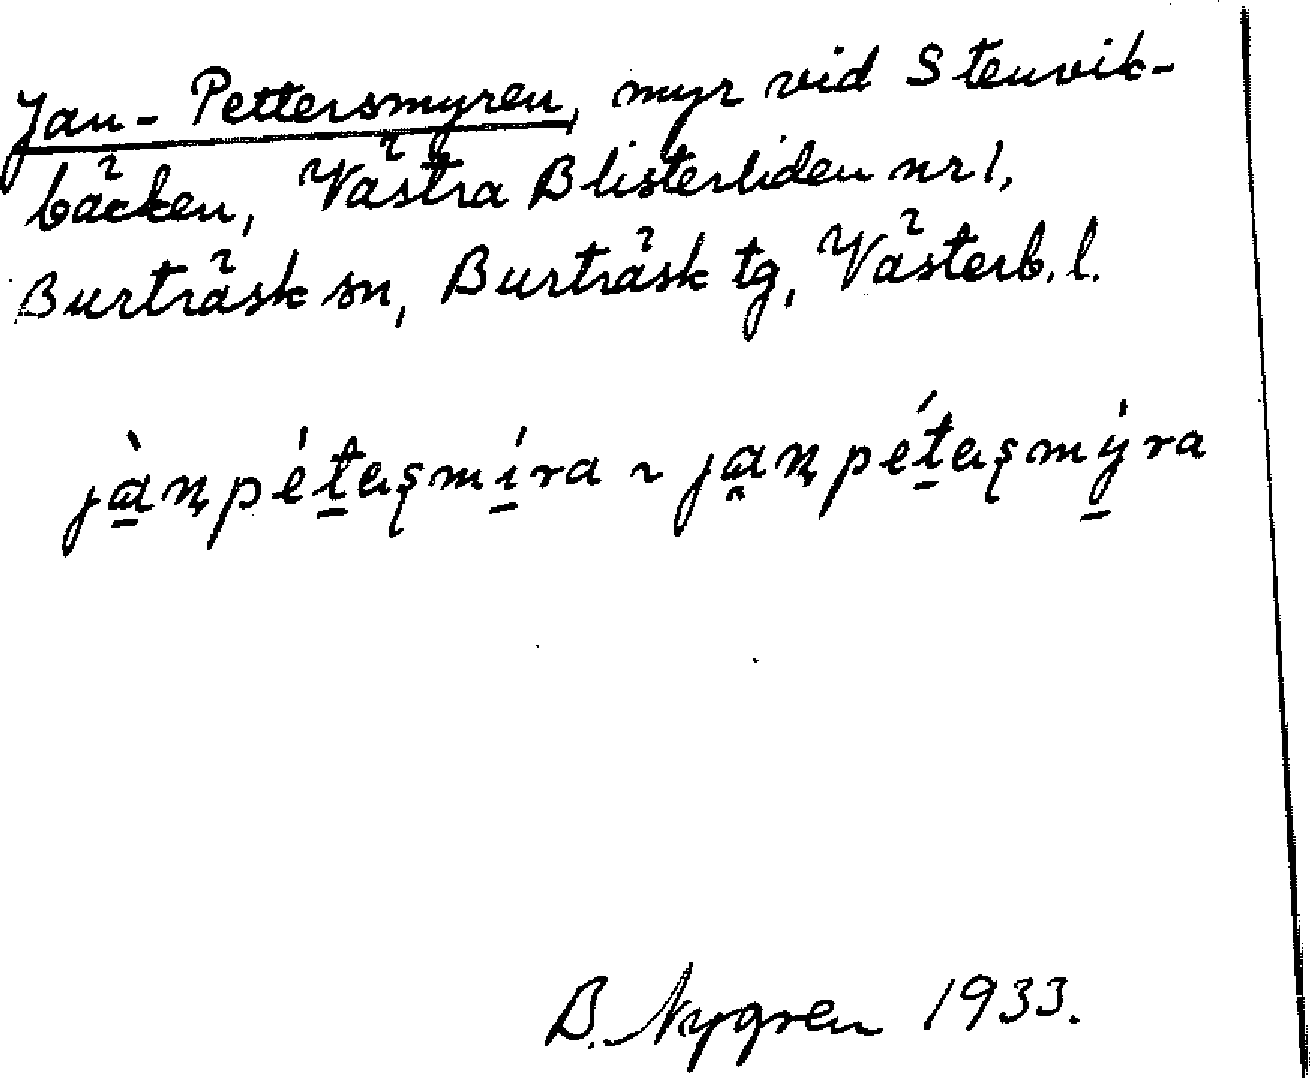 Jan-Pettersmyren, myr vid Stenvik-
bäcken, Västra Blisterliden nr 1,
Burträsk sn, Burträsk tg, Västerb. l.
jàn̥pét̲aşmí̲ra ~ jan̥pét̲aşmý̲ra
B. Nygren 1933.